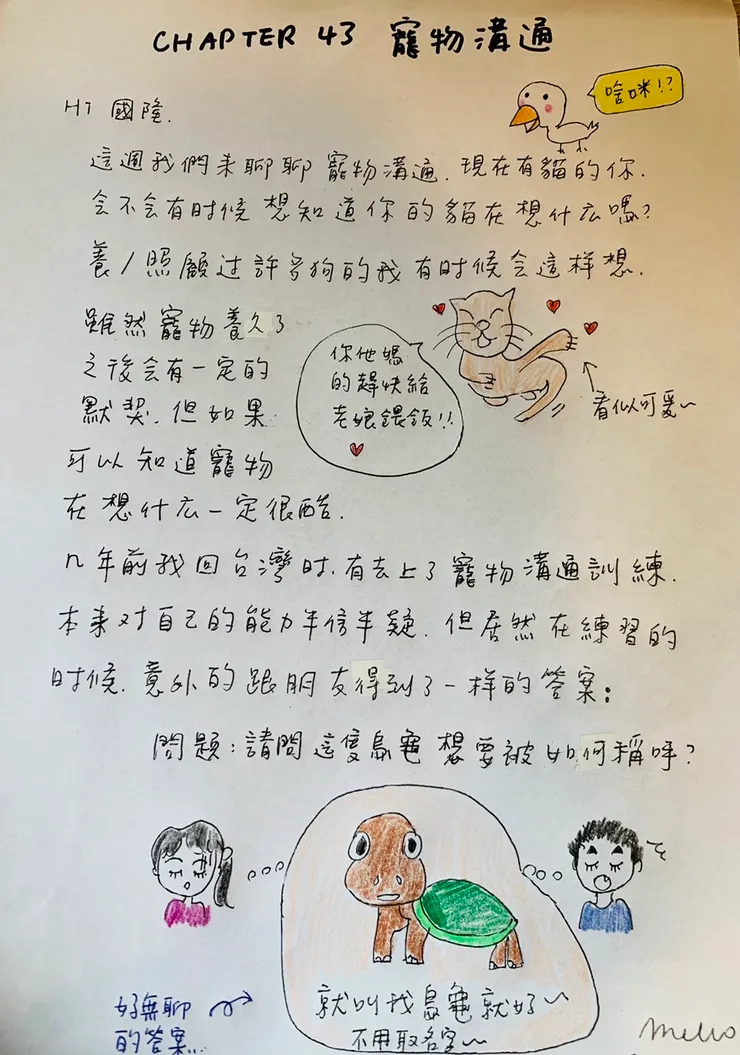 CHAPTER 43 寵物溝通
啥咪!?
HI 國隆.
這週我們来聊聊寵物溝通.現在有貓的你.
会不会有时候想知道你的貓在想什么嗎?
養/照顧过許多狗的我有时候会這样想.
雖然寵物養久了
之後会有一定的
默契.但如果
可以知道寵物
在想什么一定很酷.
你他媽
的趕快給
老娘餵飯!!
看似可爱~
几年前我回台灣时.有去上了寵物溝通訓練.
本来对自己的能力半信半疑.但居然在練習的
时候.意外的跟朋友得到了一样的答案:
問題:請問這隻烏龜想要被如何稱呼?
就叫我烏龜就好~
不用取名字~
好無聊
的答案...